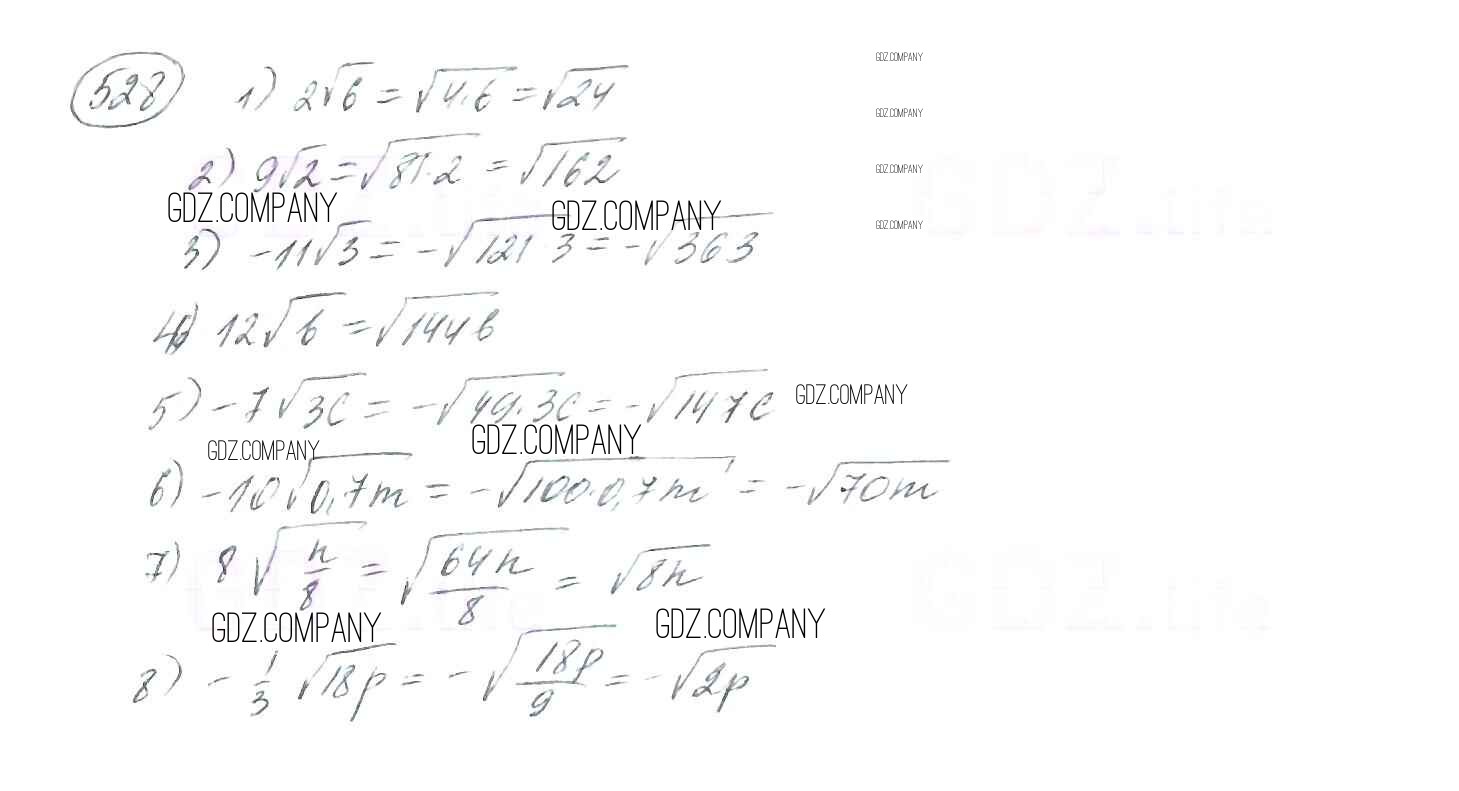 528 1) 2√6 = √4·6 = √24
GDZ.COMPANY
GDZ.COMPANY
2) 9√2 = √81·2 = √162
GDZ.COMPANY
GDZ.life
GDZ.COMPANY GDZ.COMPANY
GDZ.COMPANY
3) -11√3 = -√121 3 = -√363
4) 12√b = √144b
5) -7√3c = -√49·3c = -√147c
GDZ.COMPANY
GDZ.COMPANY GDZ.COMPANY
6) -10√0,7m = -√100·0,7m = -√70m
7) 8√n/8 = √64n/8 = √8n
GDZ.life GDZ.life
GDZ.COMPANY GDZ.COMPANY
8) -1/3 √18p = -√18p/9 = -√2p